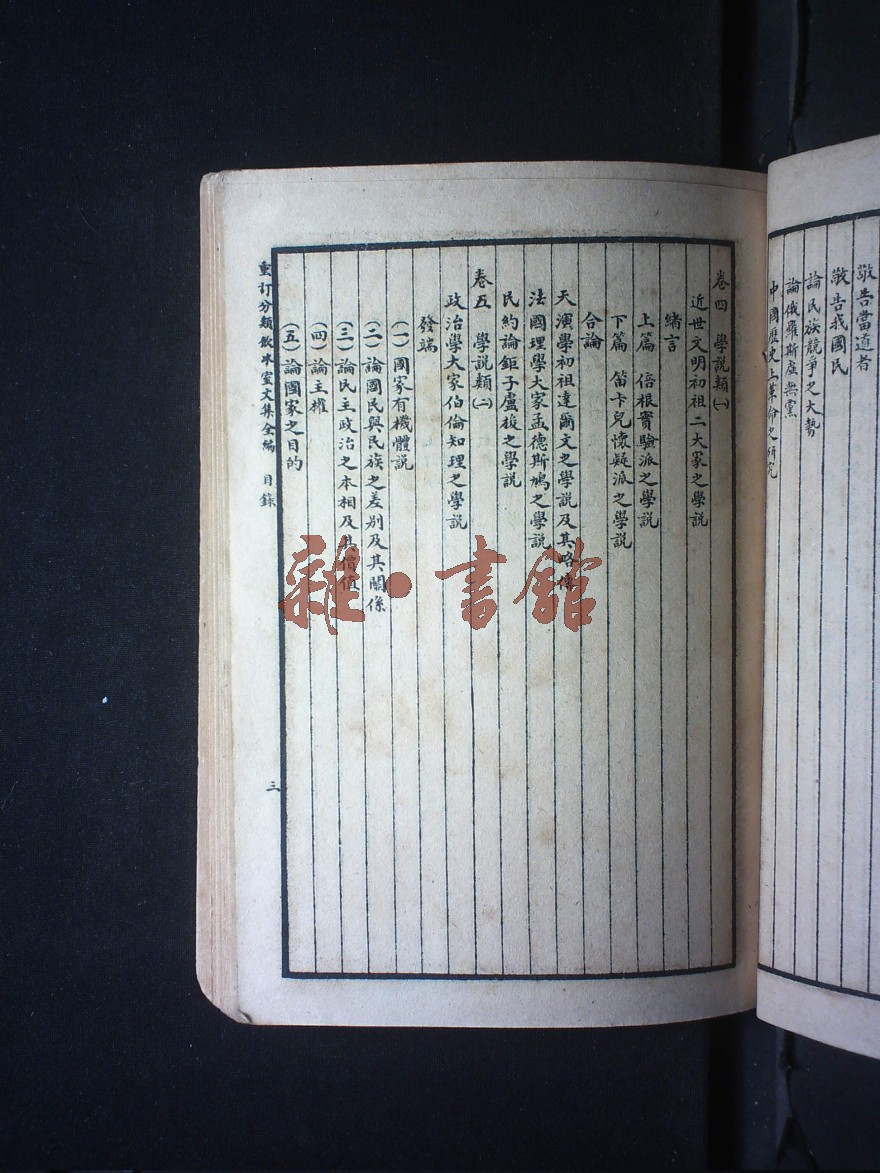 敬告當道者
敬告我國民
論民族競爭之大勢
論俄羅斯虛無黨
中國歷史上革命之研究
卷四 學說類(一)
近世文明初祖二大家之學說
緒言
上篇 倍根實驗派之學說
下篇 笛卡兒懷疑派之學說
合論
天演學初祖達爾文之學說及其略傳
法國理學大家孟德斯鳩之學說
民約論鉅子盧梭之學說
卷五 學說類(二)
政治學大家伯倫知理之學說
發端
(一)國家有機體說
(二)論國民與民族之差別及其關係
(三)論民主政治之本相及其價值
(四)論主權
(五)論國家之目的
重訂分類飲冰室文集全編 目錄
三
雜·書館